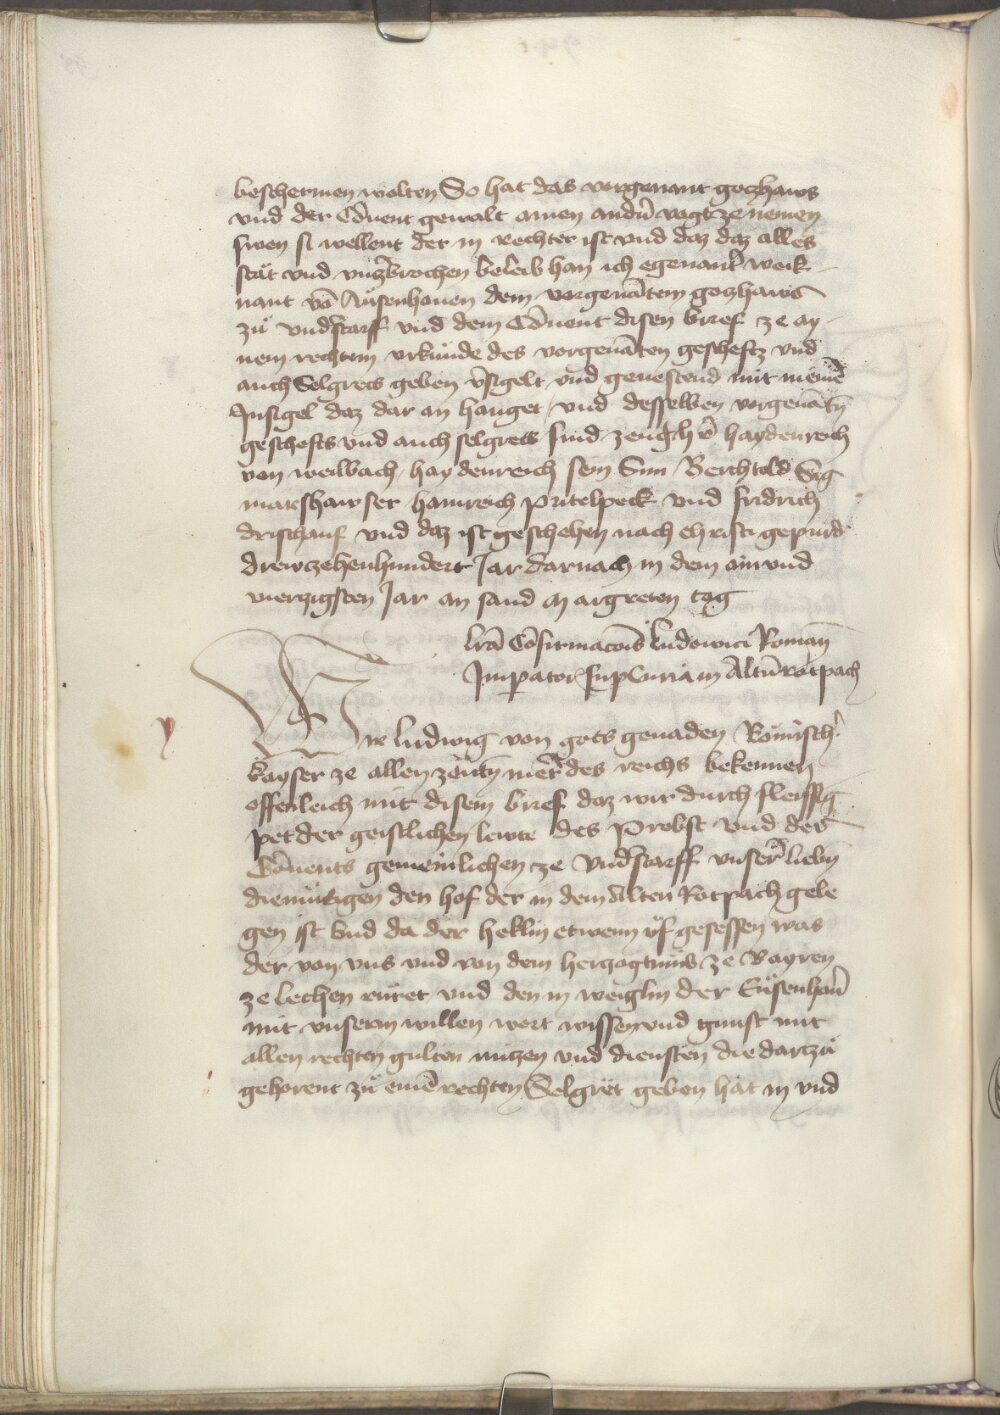 beschermen wolten So hat das vorgenant gotzhaws
vnd der Cōuent gewalt ainen andn̄ vogt ze nemen
swen si wellent der in rechter ist vnd daz daz alles
stät vnd vnz̄brochen beleib han ich egenant̄ weik
nant vō Aüsenhouen dem vorgenātem gotzhaws
zů vnd̄starff vnd dem Cōuent disen brief ze ay
nem rechtem vrkünde des vorgenāten gescheftz vnd
auch Selgretz geben v̄sigelt vnd geuestend mit meinē
Insigel daz dar an hanget vnd desselben vorgenātn̄
geschefts vnd auch selgretz sind zeug h̄ haydenreich
von weilbach haydenreich sein Sun Berchtold Sig
marshawser hainreich Pütelpeck vnd fridrich
drischauf vnd daz ist geschehen nach christi gepurd
drewzehenhundert Jar darnach in dem ain vnd
vierzigsten Jar an sand margreten tag
lr̄a Cōfirmacōis ludowici Roman̄
Imperator̄ sup̄ Curiam in Altn̄rotpach
Wir ludwig von gots genaden Römisch̄
kayser ze allen zeitn̄ mer̄ des reichs bekennen
offenleich mit disem brief daz wir durch fleissig
pet der geistlichen lewte des Probst vnd der
Cōuents gemeinlichen ze vnd̄starff vnser̄ liebn̄
diemütigen den hof der in dem Alten Rotpach gele
gen ist vnd da der heklin etwenn vf gesessen was
der von vns vnd von dem hertzogtums ze Bayren
ze lechen rüret vnd den in weiglin der Eüsenhau̅
mit vnserm willen wort wissen vnd gunst mit
allen rechten gulten nutzen vnd diensten die dartzů
gehorent zů einē rechten Selgrët geben hat in vnd